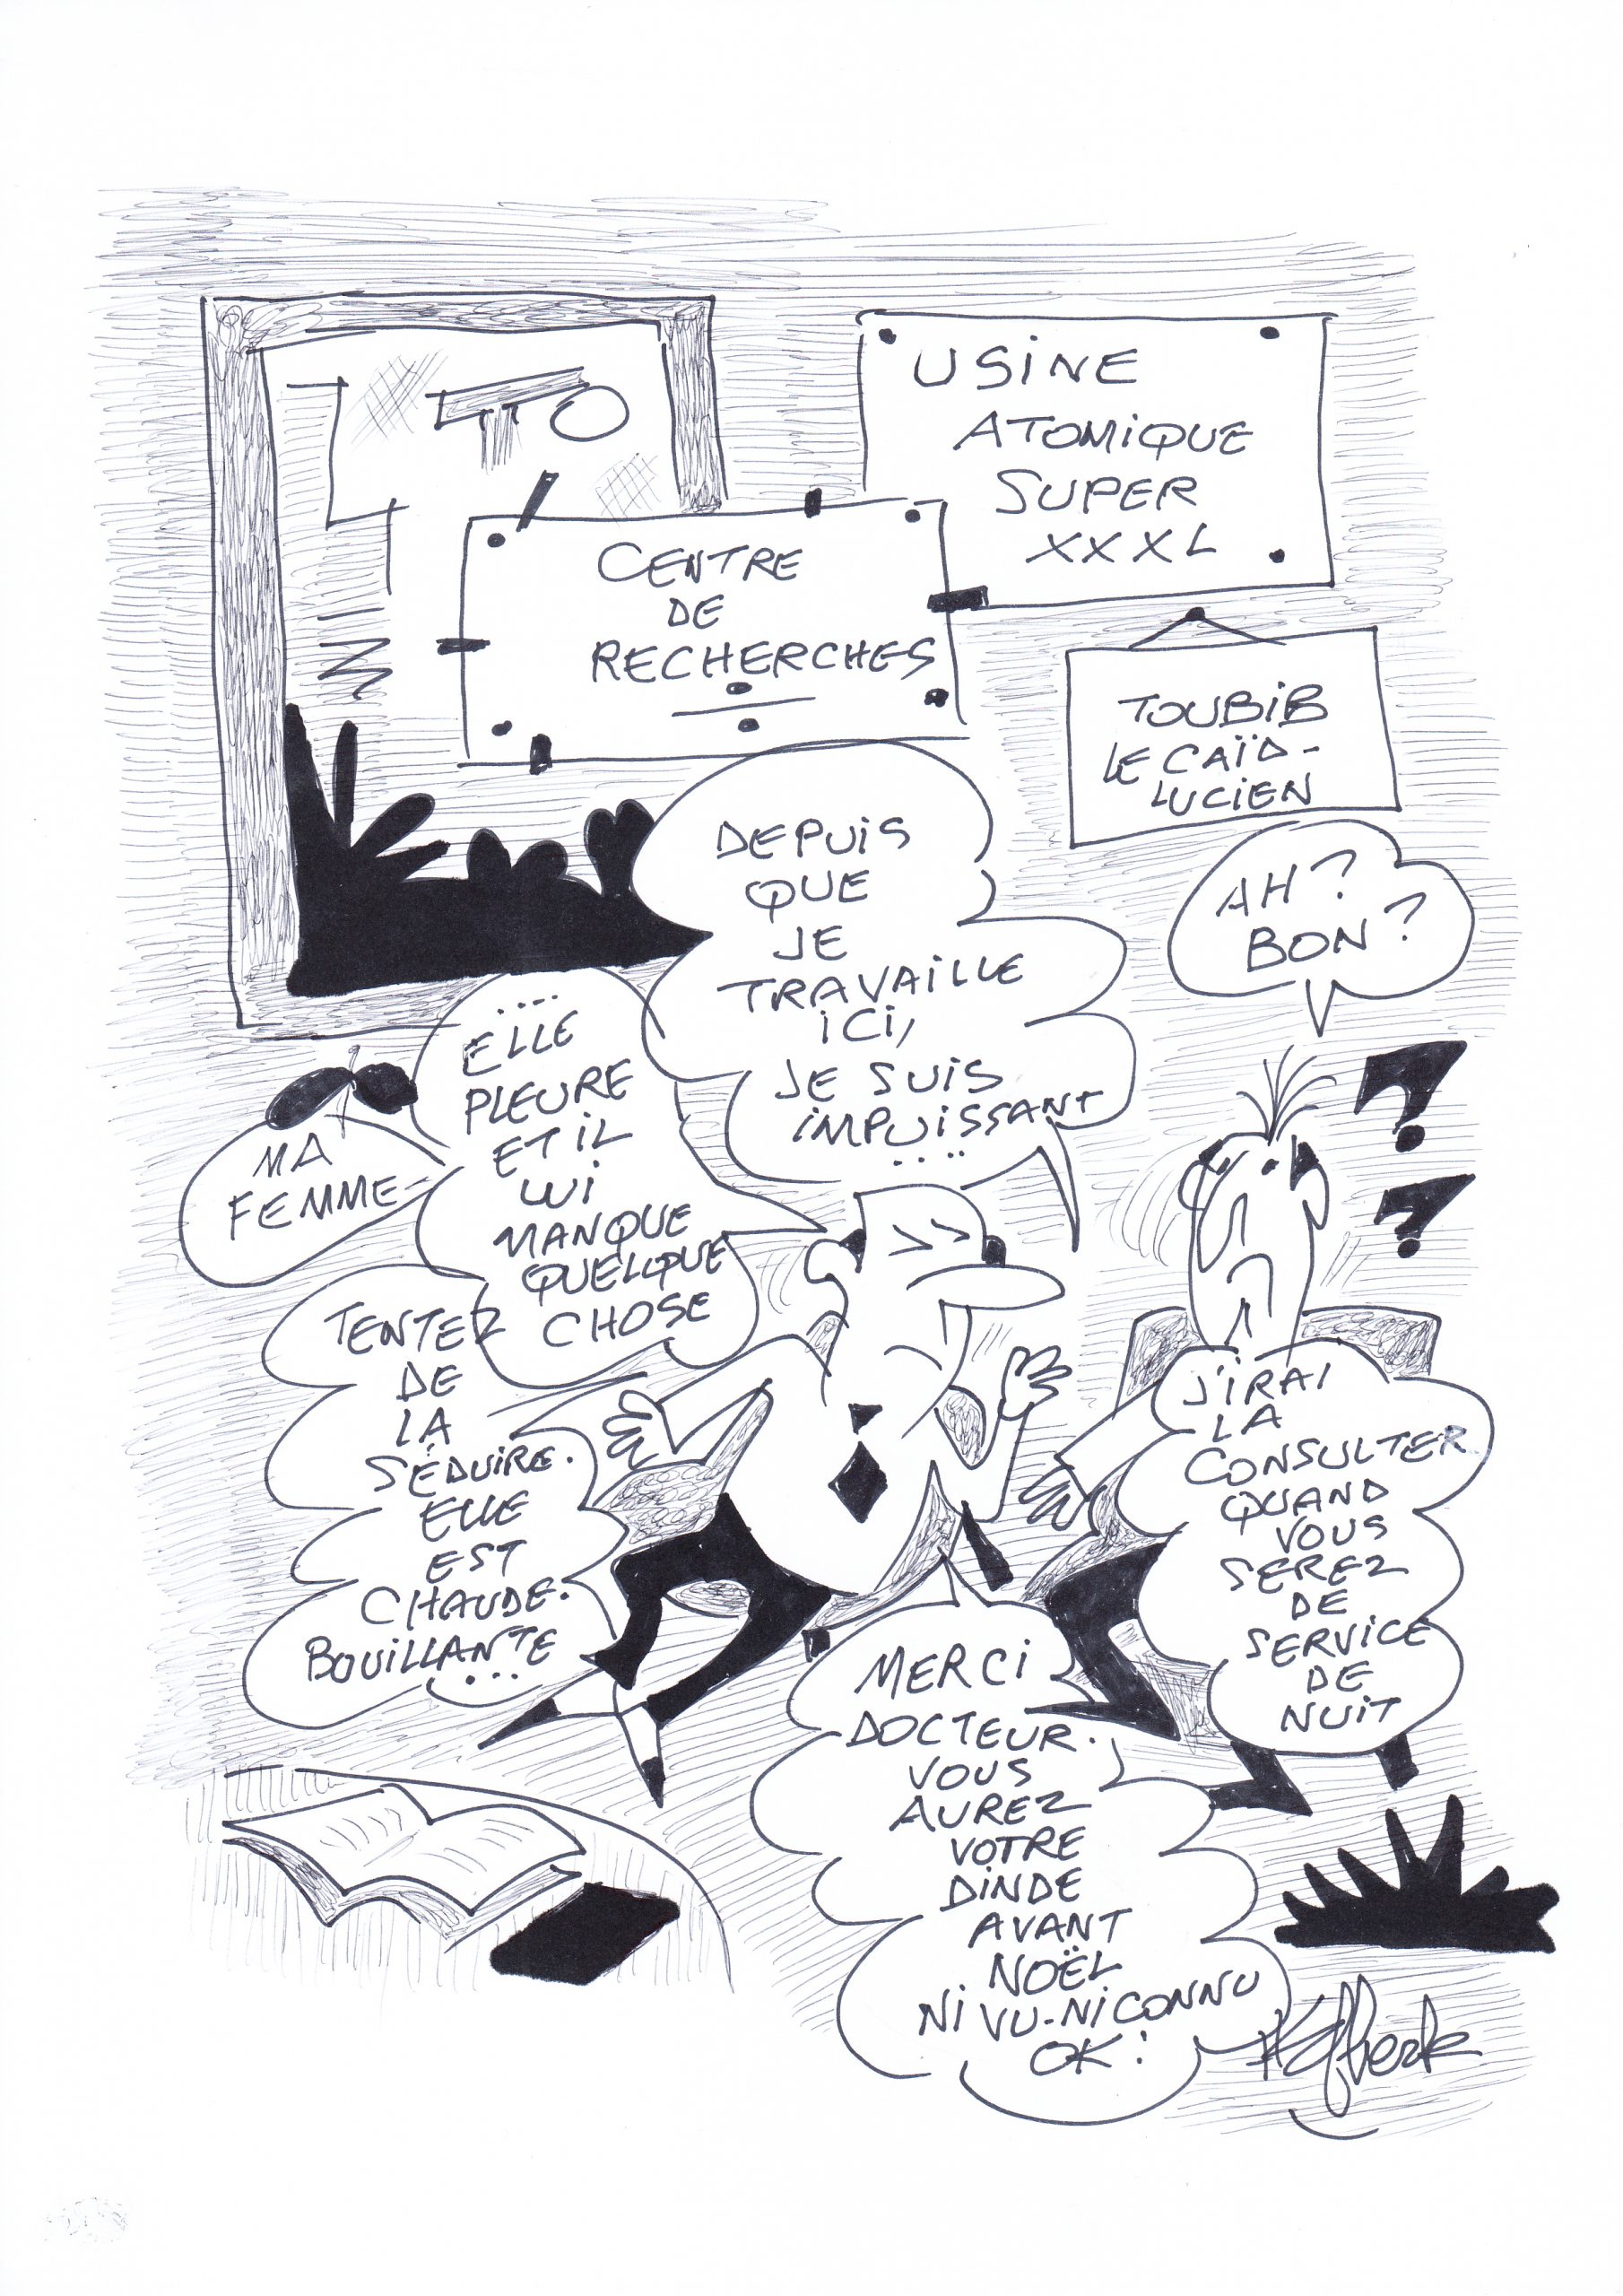 USINE
ATOMIQUE
SUPER
XXXL
CENTRE
DE
RECHERCHES
TOUBIB
LE CAÏD-
LUCIEN
DEPUIS
QUE
JE
TRAVAILLE
ICI,
JE SUIS
IMPUISSANT
....
AH?
BON?
MA
FEMME-
...
ELLE
PLEURE
ET IL
LUI
MANQUE
QUELQUE
CHOSE
TENTEZ
DE
LA
SÉDUIRE.
ELLE
EST
CHAUDE.
BOUILLANTE
...
J'IRAI
LA
CONSULTER
QUAND
VOUS
SEREZ
DE
SERVICE
DE
NUIT
MERCI
DOCTEUR.
VOUS
AUREZ
VOTRE
DINDE
AVANT
NOËL
NI VU-NI CONNU
OK!